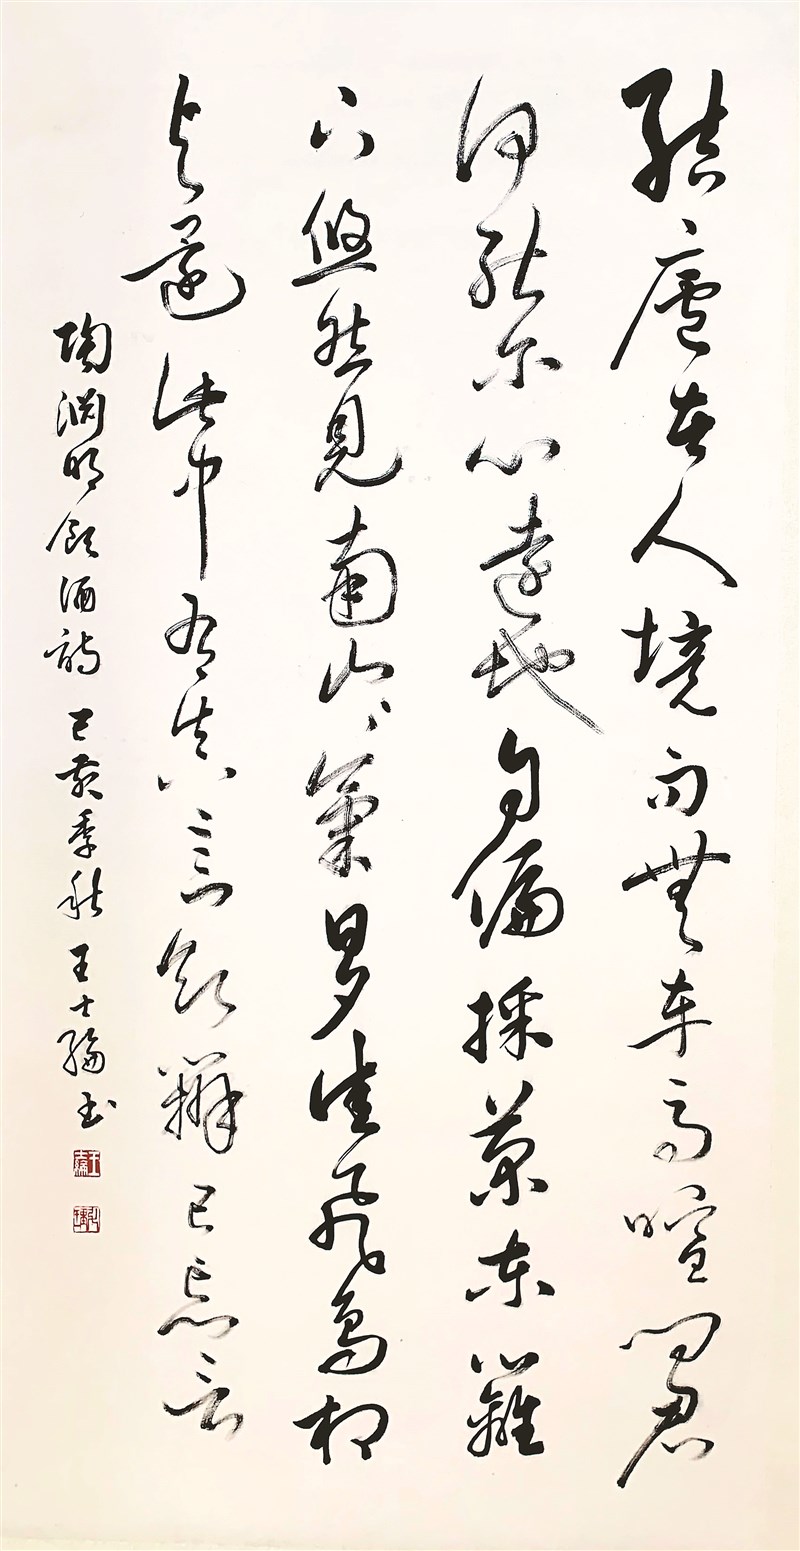 結廬在人境而無車馬喧問君
何能尔心遠地自偏採菊東籬
下悠然見南山々氣日夕佳飛鳥相
與還此中有真意欲辨已忘言
陶淵明飲酒詩 己亥季秋 王士 书